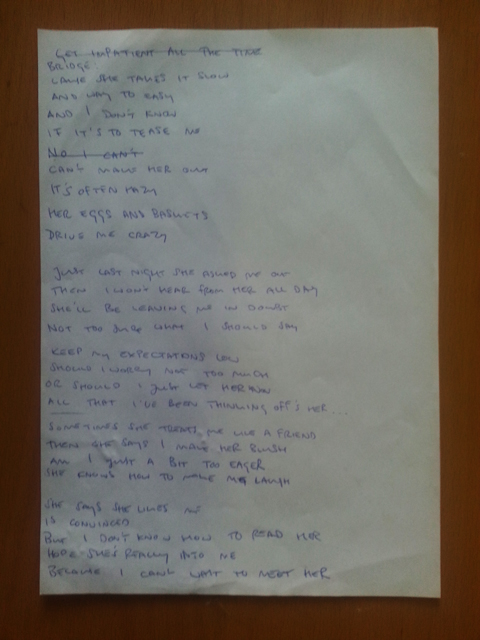 GET IMPATIENT ALL THE TIME
BRIDGE:
CAUSE SHE TAKES IT SLOW
AND WAY TO EASY
AND I DON'T KNOW
IF IT'S TO TEASE ME
NO I CAN'T
CAN'T MAKE HER OUT
IT'S OFTEN HAZY
HER EGGS AND BASKETS
DRIVE ME CRAZY
JUST LAST NIGHT SHE ASKED ME OUT
THEN I WON'T HEAR FROM HER ALL DAY
SHE'LL BE LEAVING ME IN DOUBT
NOT TOO SURE WHAT I SHOULD SAY
KEEP MY EXPECTATIONS LOW
SHOULD I WORRY NOT TOO MUCH
OR SHOULD I JUST LET HER KNOW
ALL THAT I'VE BEEN THINKING OFF'S HER...
SOMETIMES SHE TREATS ME LIKE A FRIEND
THEN SHE SAYS I MAKE HER BLUSH
AM I JUST A BIT TOO EAGER
SHE KNOWS HOW TO MAKE ME LAUGH
SHE SAYS SHE LIKES ME
IS CONVINCED
BUT I DON'T KNOW HOW TO READ HER
HOPE SHE'S REALLY INTO ME
BECAUSE I CAN'T WAIT TO MEET HER